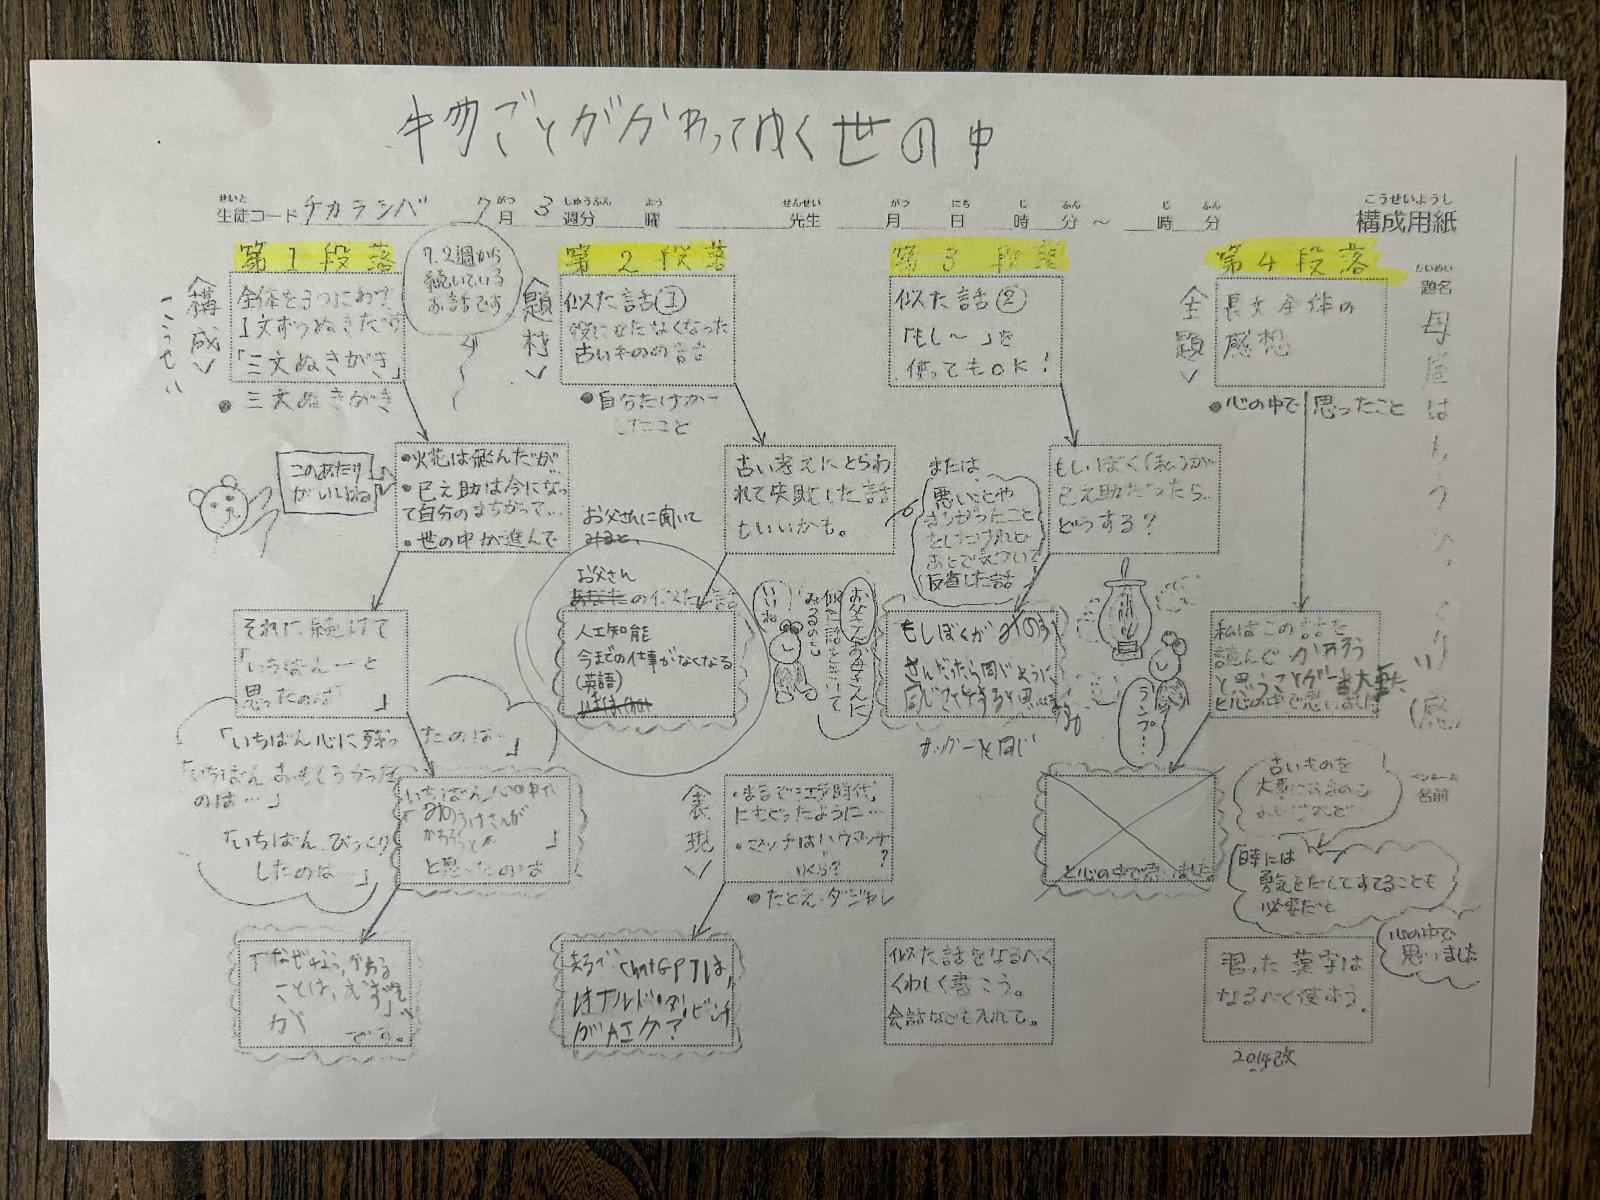 物ごとがかわってゆく世の中
せいと
生徒コード チカラシバ 7月 3週分 曜 先生 月 日 時 分 ～ 時 分
がつ しゅうぶん よう せんせい がつ にち じ ふん じ ふん
こうせいようし
構成用紙
だいめい
題名
母屋は
(感)
ペンネーム
名前
第1段落
〈構成〉
こうせい
全体を3つにわけ、
1文ずつぬきだす
「三文ぬきがき」
●三文ぬきがき
7.2週から
続いている
お話です
このあたり
がいいかな
・火花は飛んだが…
・巳之助は今になっ
て自分のまちがって…
・世の中が進んで
それに続けて
「いちばん―と
思ったのは 」
「いちばん心に残ったのは…」
「いちばんおもしろかった
のは…」
「いちばんびっくり
したのは…」
いちばん心の中で
「みのすけさんが
」
と思ったのは
「なぜなら、
ことは、
が です。
第2段落
〈題材〉
似た話①
役に立たなくなった
古いものの話
●自分だけが
したこと
古い考えにとらわ
れて失敗した話
もいいかも。
お父さんに聞いて
みると、
お父さん
あなたの似た話
人工知能
今までの仕事がなくなる
(英語)
お父さんお母さんに
似た話をきいて
みるのも
いいね
〈表現〉
・まるで江戸時代
にもどったように…
・マッチはハウマッチ
いくら?
?
●たとえ・ダジャレ
まるでChatGPTは、
レオナルド・ダ・ビンチ
がAIケア
第3段落
似た話②
「もし～」を
使ってもOK!
または、
悪いことや
まちがったこと
をしたけれど
あとで気づいて
反省した話
もしぼく(私)が
巳之助だったら
どうする?
もしぼくがみのす
さんだったら同じように
同じことをすると思います。
ランプ…
似た話をなるべく
くわしく書こう。
会話なども入れて。
第4段落
〈主題〉
長文全体の
感想
●心の中で思ったこと
私はこの話を
読んで
と思うことが一番大事だ
と心の中で思いました
と心の中で思いました。
古いものを
大事にするのも
時には
勇気をだしてすてることも
必要だと
心の中で
思いました
習った漢字は
なるべく使おう。
2014改